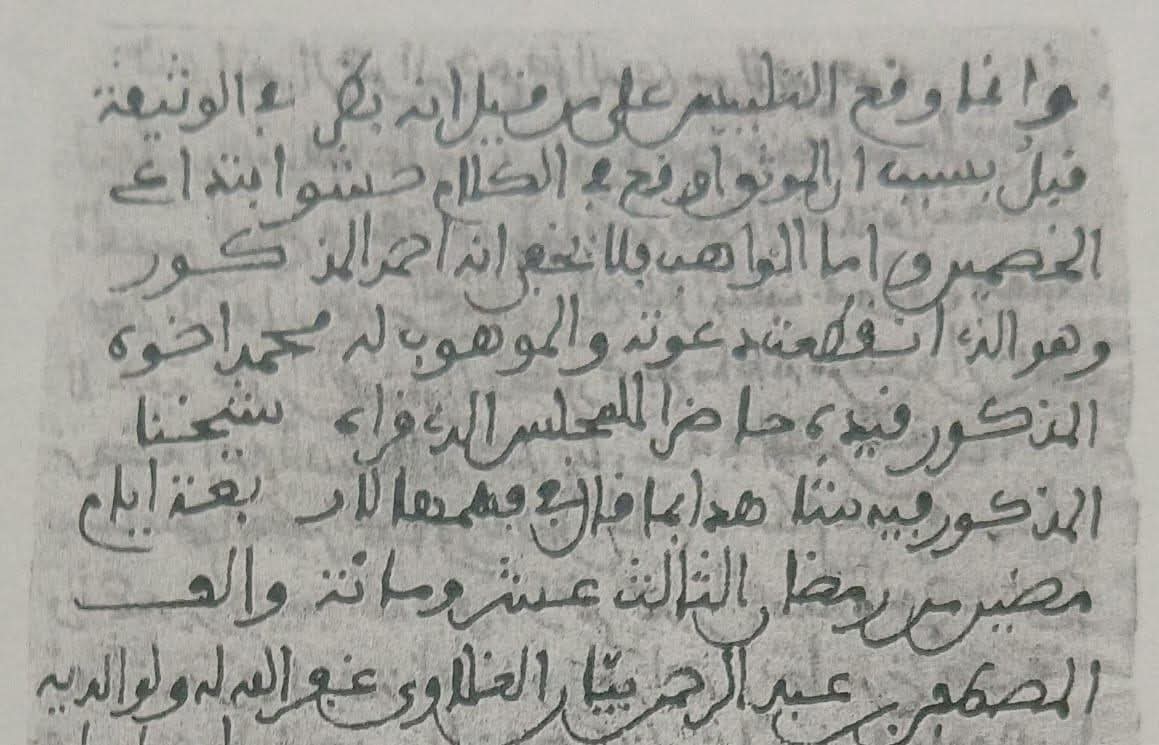 وانما وقع التلبيس على من قبل انه نظر في الوثيقة
قبل بسبب ان الموثق اوقع في الكلام حشوا
الخصمين واما الواهب فلا يخفى انه احمد المذكور
وهو الذي انقطعت دعوته والموهوب له محمد اخوه
المذكور حاضرا المجلس الذي قراه شيخنا
المذكور فيه هذا ايام
مضين من رمضان الثالث عشر ومائة والف
المصطفى بن عبد الرحمن الغلاوي غفر الله له ولوالديه